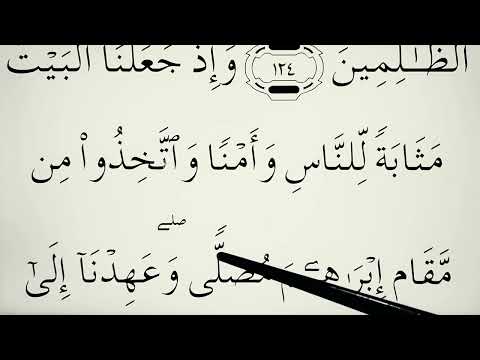 ٱلظَّـٰلِمِينَ ١٢٤ وَإِذْ جَعَلْنَا ٱلْبَيْتَ
مَثَابَةً لِّلنَّاسِ وَأَمْنًا وَٱتَّخِذُوا۟ مِن
مَّقَامِ إِبْرَٰهِـۧمَ مُصَلًّى ۖ وَعَهِدْنَآ إِلَىٰٓ